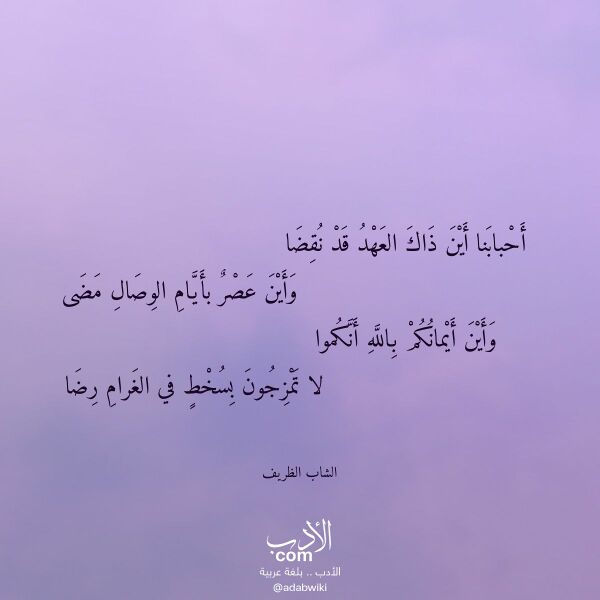 أَحْبابَنا أَيْنَ ذَاكَ العَهْدُ قَدْ نُقِضَا
وَأَيْنَ عَصْرٌ بأَيَّامِ الوِصَالِ مَضَى
وَأَيْنَ أَيْمانُكُمْ بِاللَّهِ أَنَّكُموا
لا تَمْزِجُونَ بِسُخْطٍ في الغَرامِ رِضَا
الشاب الظريف
الأدب
com
الأدب .. بلغة عربية
@adabwiki